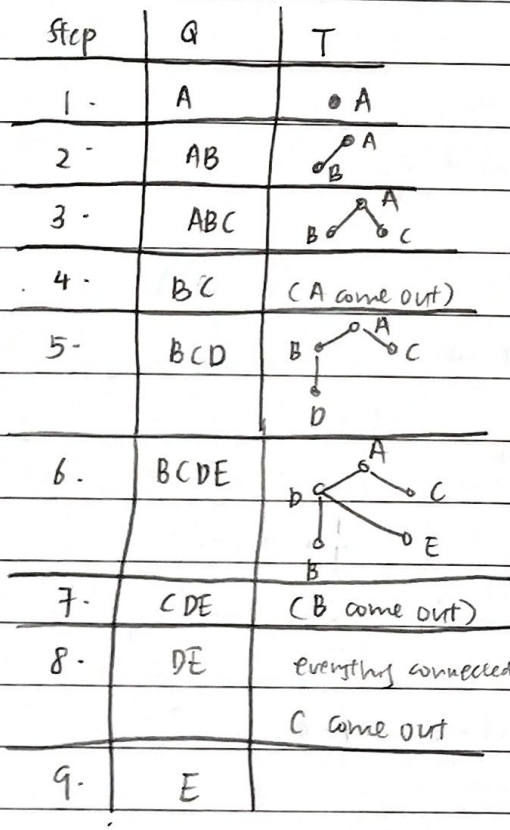 Step Q T
1. A A
2 AB A
B
3. ABC A
B C
4. BC (A come out)
5- BCD B A C
D
6. BCDE A
D C
E
B
7. CDE (B come out)
8. DE everything connected
C come out
9. E